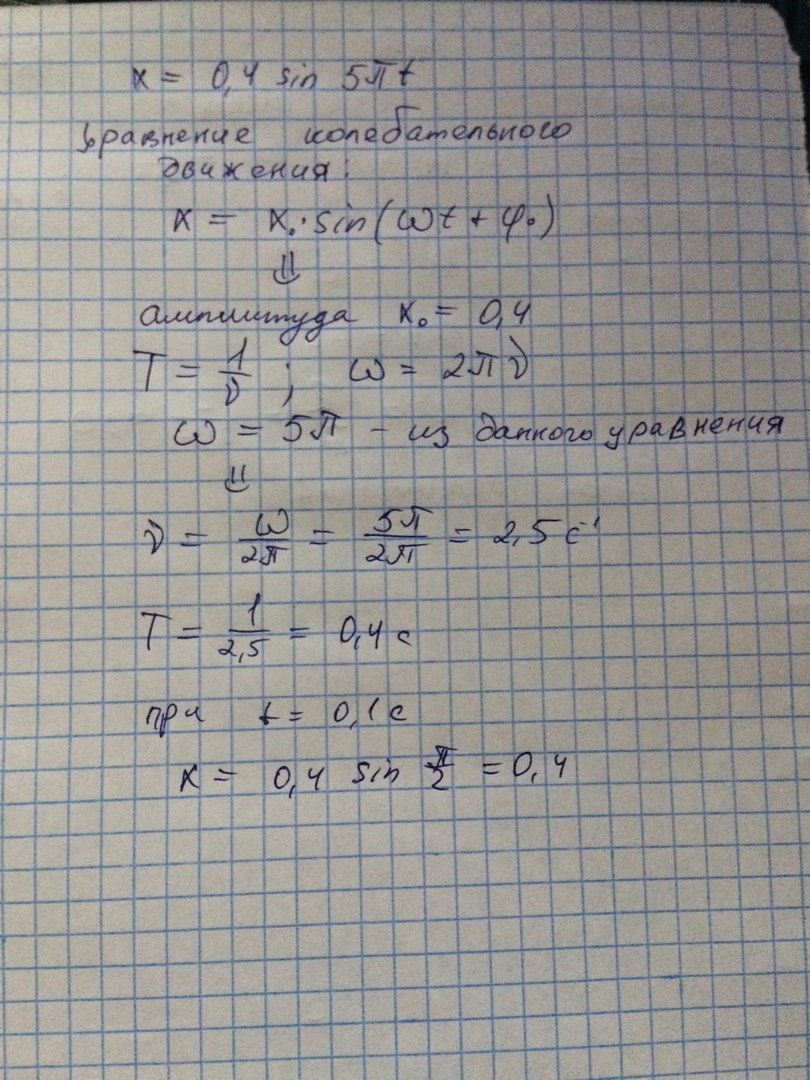 x = 0,4 sin 5πt
уравнение колебательного
движения:
x = x₀·sin(ωt + φ₀)
⇓
амплитуда x₀ = 0,4
T = 1/ν ; ω = 2πν
ω = 5π – из данного уравнения
⇓
ν = ω/2π = 5π/2π = 2,5 с⁻¹
T = 1/2,5 = 0,4 с
при t = 0,1 с
x = 0,4 sin π/2 = 0,4